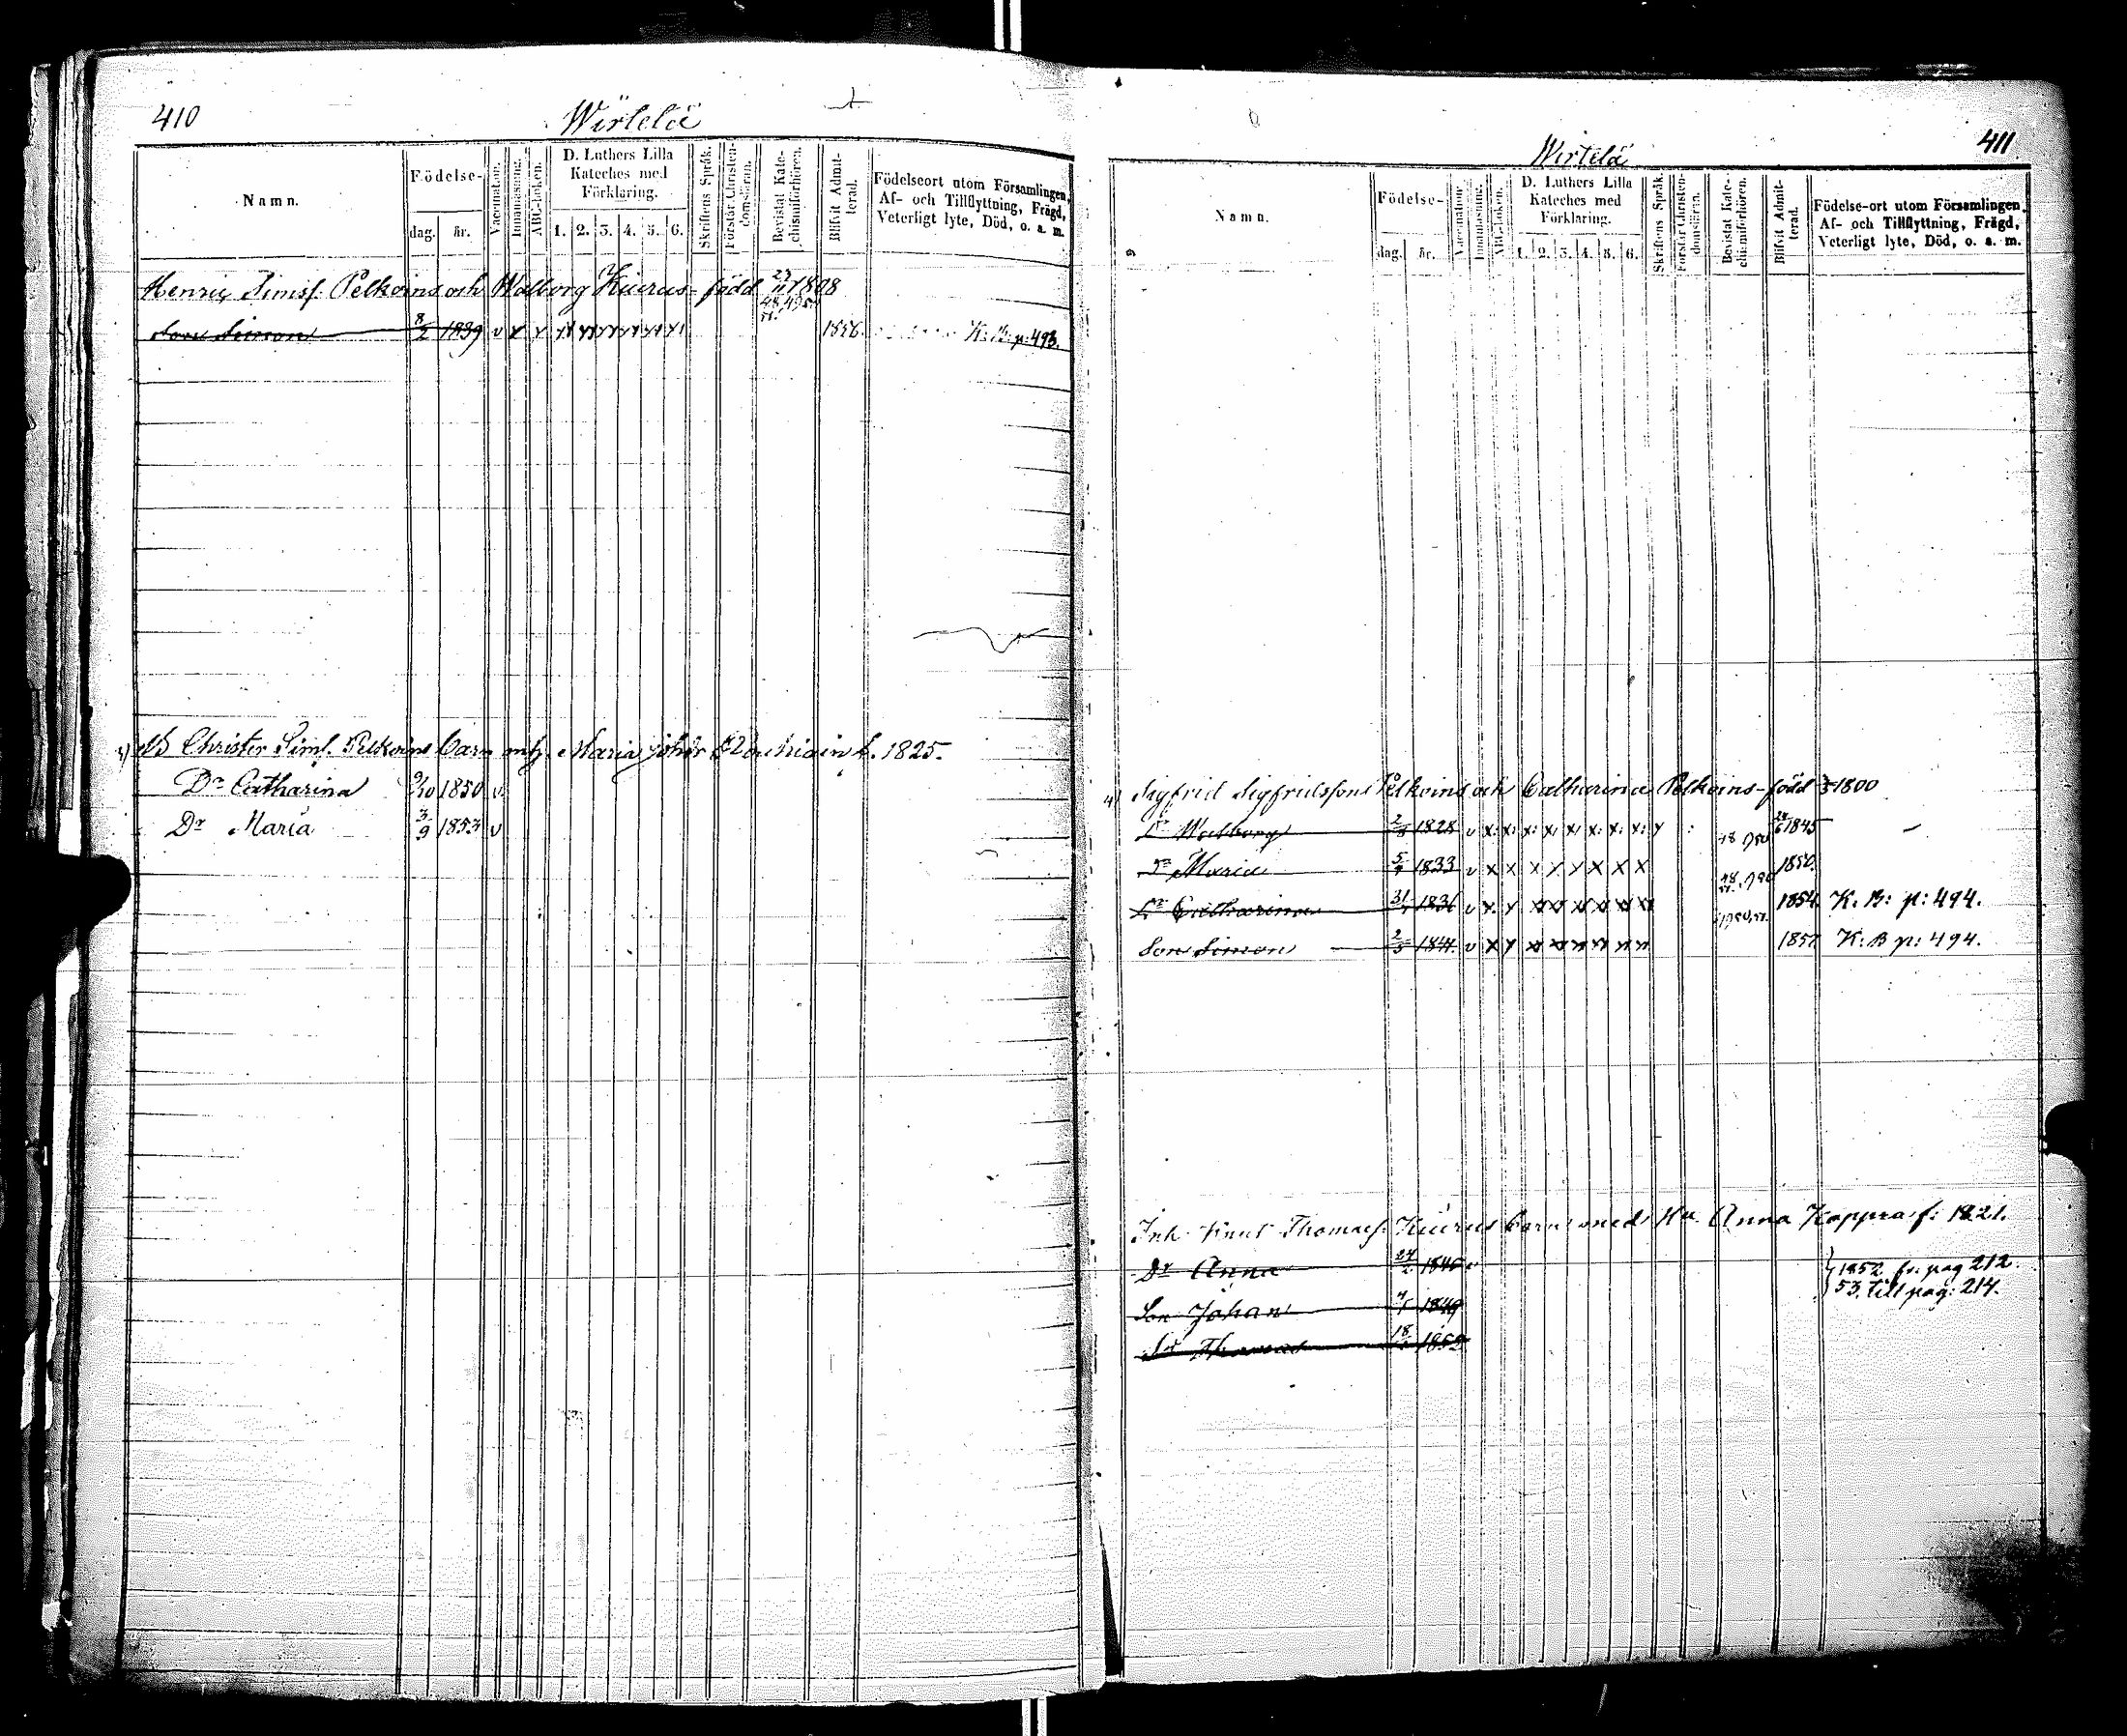 410
Wirtelä
Namn.
Födelse-
dag. år.
Vaccination.
Innanläsning.
ABC-boken.
D. Luthers Lilla
Kateches med
Förklaring.
1. 2. 3. 4. 5. 6.
Skriftens Språk.
Förstår Christen-
domsläran.
Bevistat Kate-
chismiförhören.
Blifvit Admit-
terad.
Födelseort utom Församlingen,
Af- och Tillflyttning, Frägd,
Veterligt lyte, Död, o. a. m.
Henric Simsf. Pelkoins och Walborg Kiurus - född 1808
Son Simon 8/2 1839 v x x 1856. K. B: p: 493.
Christer Simf. Pelkoins barn Maria 1825.
Dr Catharina 9/10 1850 v
Dr Maria 3/9 1853 v
411
Wirtelä
Namn.
Födelse-
dag. år.
Vaccination.
Innanläsning.
ABC-boken.
D. Luthers Lilla
Kateches med
Förklaring.
1. 2. 3. 4. 5. 6.
Skriftens Språk.
Förstår Christen-
domsläran.
Bevistat Kate-
chismiförhören.
Blifvit Admit-
terad.
Födelse-ort utom Församlingen,
Af- och Tillflyttning, Frägd,
Veterligt lyte, Död, o. a. m.
4) Sigfrid Sigfridssons Pelkoins och Catharina Pelkoins - född 1800
Dr Walborg 1828 v x x x x x x x x x 1845
Dr Maria 1833 v x x x x x x x x 1850.
Dr Catharina 31 1836 v x x 1854 K. B: p: 494.
Son Simon 1841 v x x 1857 K: B p: 494.
Inh. Knut Thomasf. Kiurus barn med Hu. Anna Koppra f: 1821.
Dr Anna 24/2 1846 v 1852 fr: pag 212.
Son Johan 1849 53. till pag: 214.
Thomas 18 1852